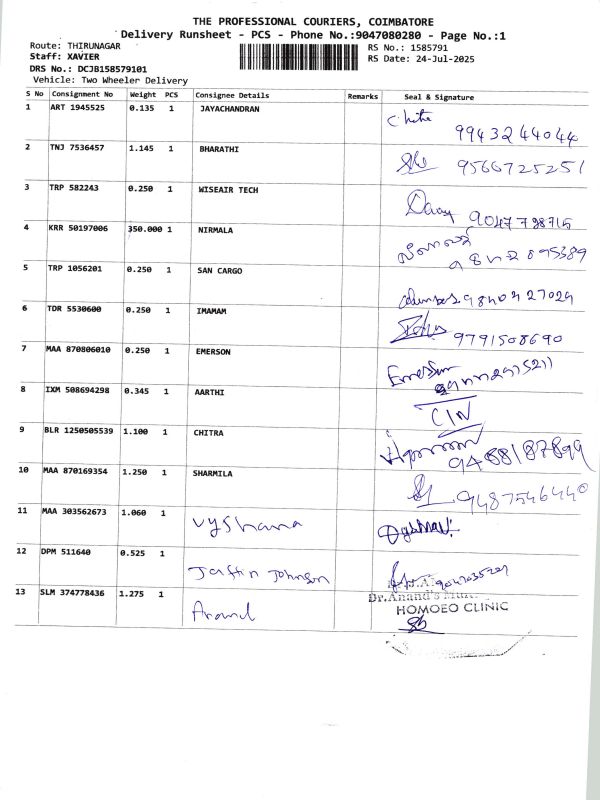 THE PROFESSIONAL COURIERS, COIMBATORE
Delivery Runsheet - PCS - Phone No.:9047080280 - Page No.:1
Route: THIRUNAGAR RS No.: 1585791
Staff: XAVIER RS Date: 24-Jul-2025
DRS No.: DCJB158579101
Vehicle: Two Wheeler Delivery
S No Consignment No Weight PCS Consignee Details Remarks Seal & Signature
1 ART 1945525 0.135 1 JAYACHANDRAN
9943244044
2 TNJ 7536457 1.145 1 BHARATHI
9566725251
3 TRP 582243 0.250 1 WISEAIR TECH
4 KRR 50197006 350.000 1 NIRMALA
5 TRP 1056201 0.250 1 SAN CARGO
6 TDR 5530600 0.250 1 IMAMAM
9791508690
7 MAA 870806010 0.250 1 EMERSON
Emerson
8 IXM 508694298 0.345 1 AARTHI
CIN
9 BLR 1250505539 1.100 1 CHITRA
9488187899
10 MAA 870169354 1.250 1 SHARMILA
9487546440
11 MAA 303562673 1.060 1 Vyshana
12 DPM 511640 0.525 1 Jastin Johnson
13 SLM 374778436 1.275 1 Anand
Dr.Anand's
HOMOEO CLINIC